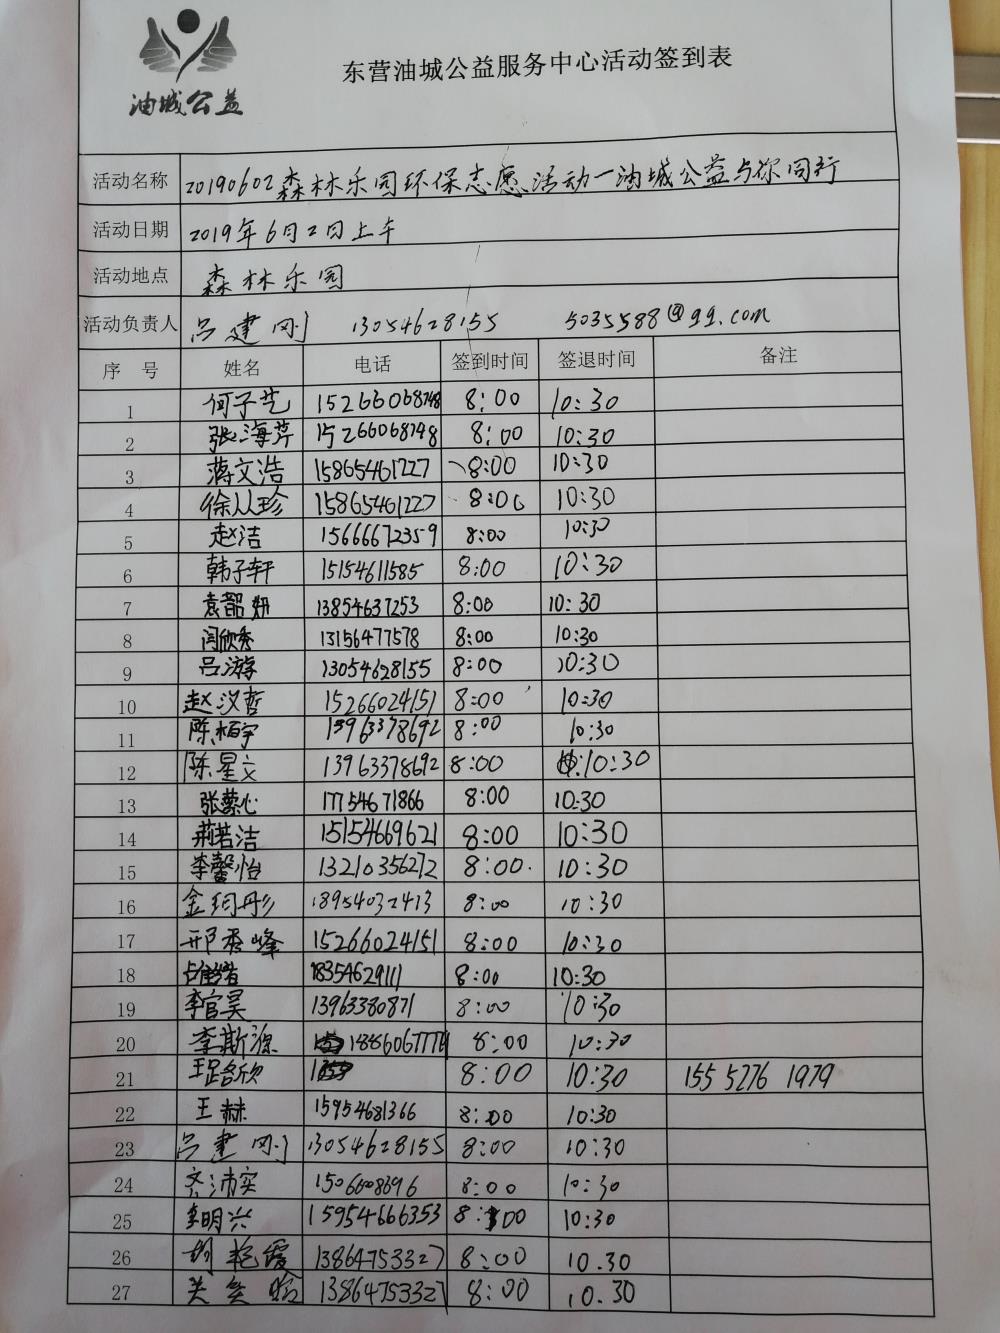 油城公益
东营油城公益服务中心活动签到表
活动名称 20190602森林乐园环保志愿活动一油城公益与你同行
活动日期 2019年6月2日上午
活动地点 森林乐园
活动负责人 吕建刚 13054628155 5035588@qq.com
序号 姓名 电话 签到时间 签退时间 备注
1 何子艺 15266068748 8:00 10:30
2 张海芹 15266068748 8:00 10:30
3 蒋文浩 15865461227 8:00 10:30
4 徐从珍 15865461227 8:00 10:30
5 赵洁 15666672359 8:00 10:30
6 韩子轩 15154611585 8:00 10:30
7 袁韶妍 13854637253 8:00 10:30
8 闫欣秀 13156477578 8:00 10:30
9 吕游 13054628155 8:00 10:30
10 赵汉哲 15266024151 8:00 10:30
11 陈柏宇 13963378692 8:00 10:30
12 陈星文 13963378692 8:00 10:30
13 张蒙心 17754671866 8:00 10:30
14 荆若洁 15154669621 8:00 10:30
15 李馨怡 13210356272 8:00 10:30
16 金珂彤 18954032413 8:00 10:30
17 邢秀峰 15266024151 8:00 10:30
18 18354629111 8:00 10:30
19 李官昊 13963380871 8:00 10:30
20 李斯源 8:00 10:30
21 8:00 10:30 155 5276 1979
22 王赫 15954681366 8:00 10:30
23 吕建刚 13054628155 8:00 10:30
24 齐沛实 8:00 10:30
25 李明兴 15954666353 8:00 10:30
26 胡艳霞 13864753327 8:00 10.30
27 13864753327 8:00 10.30